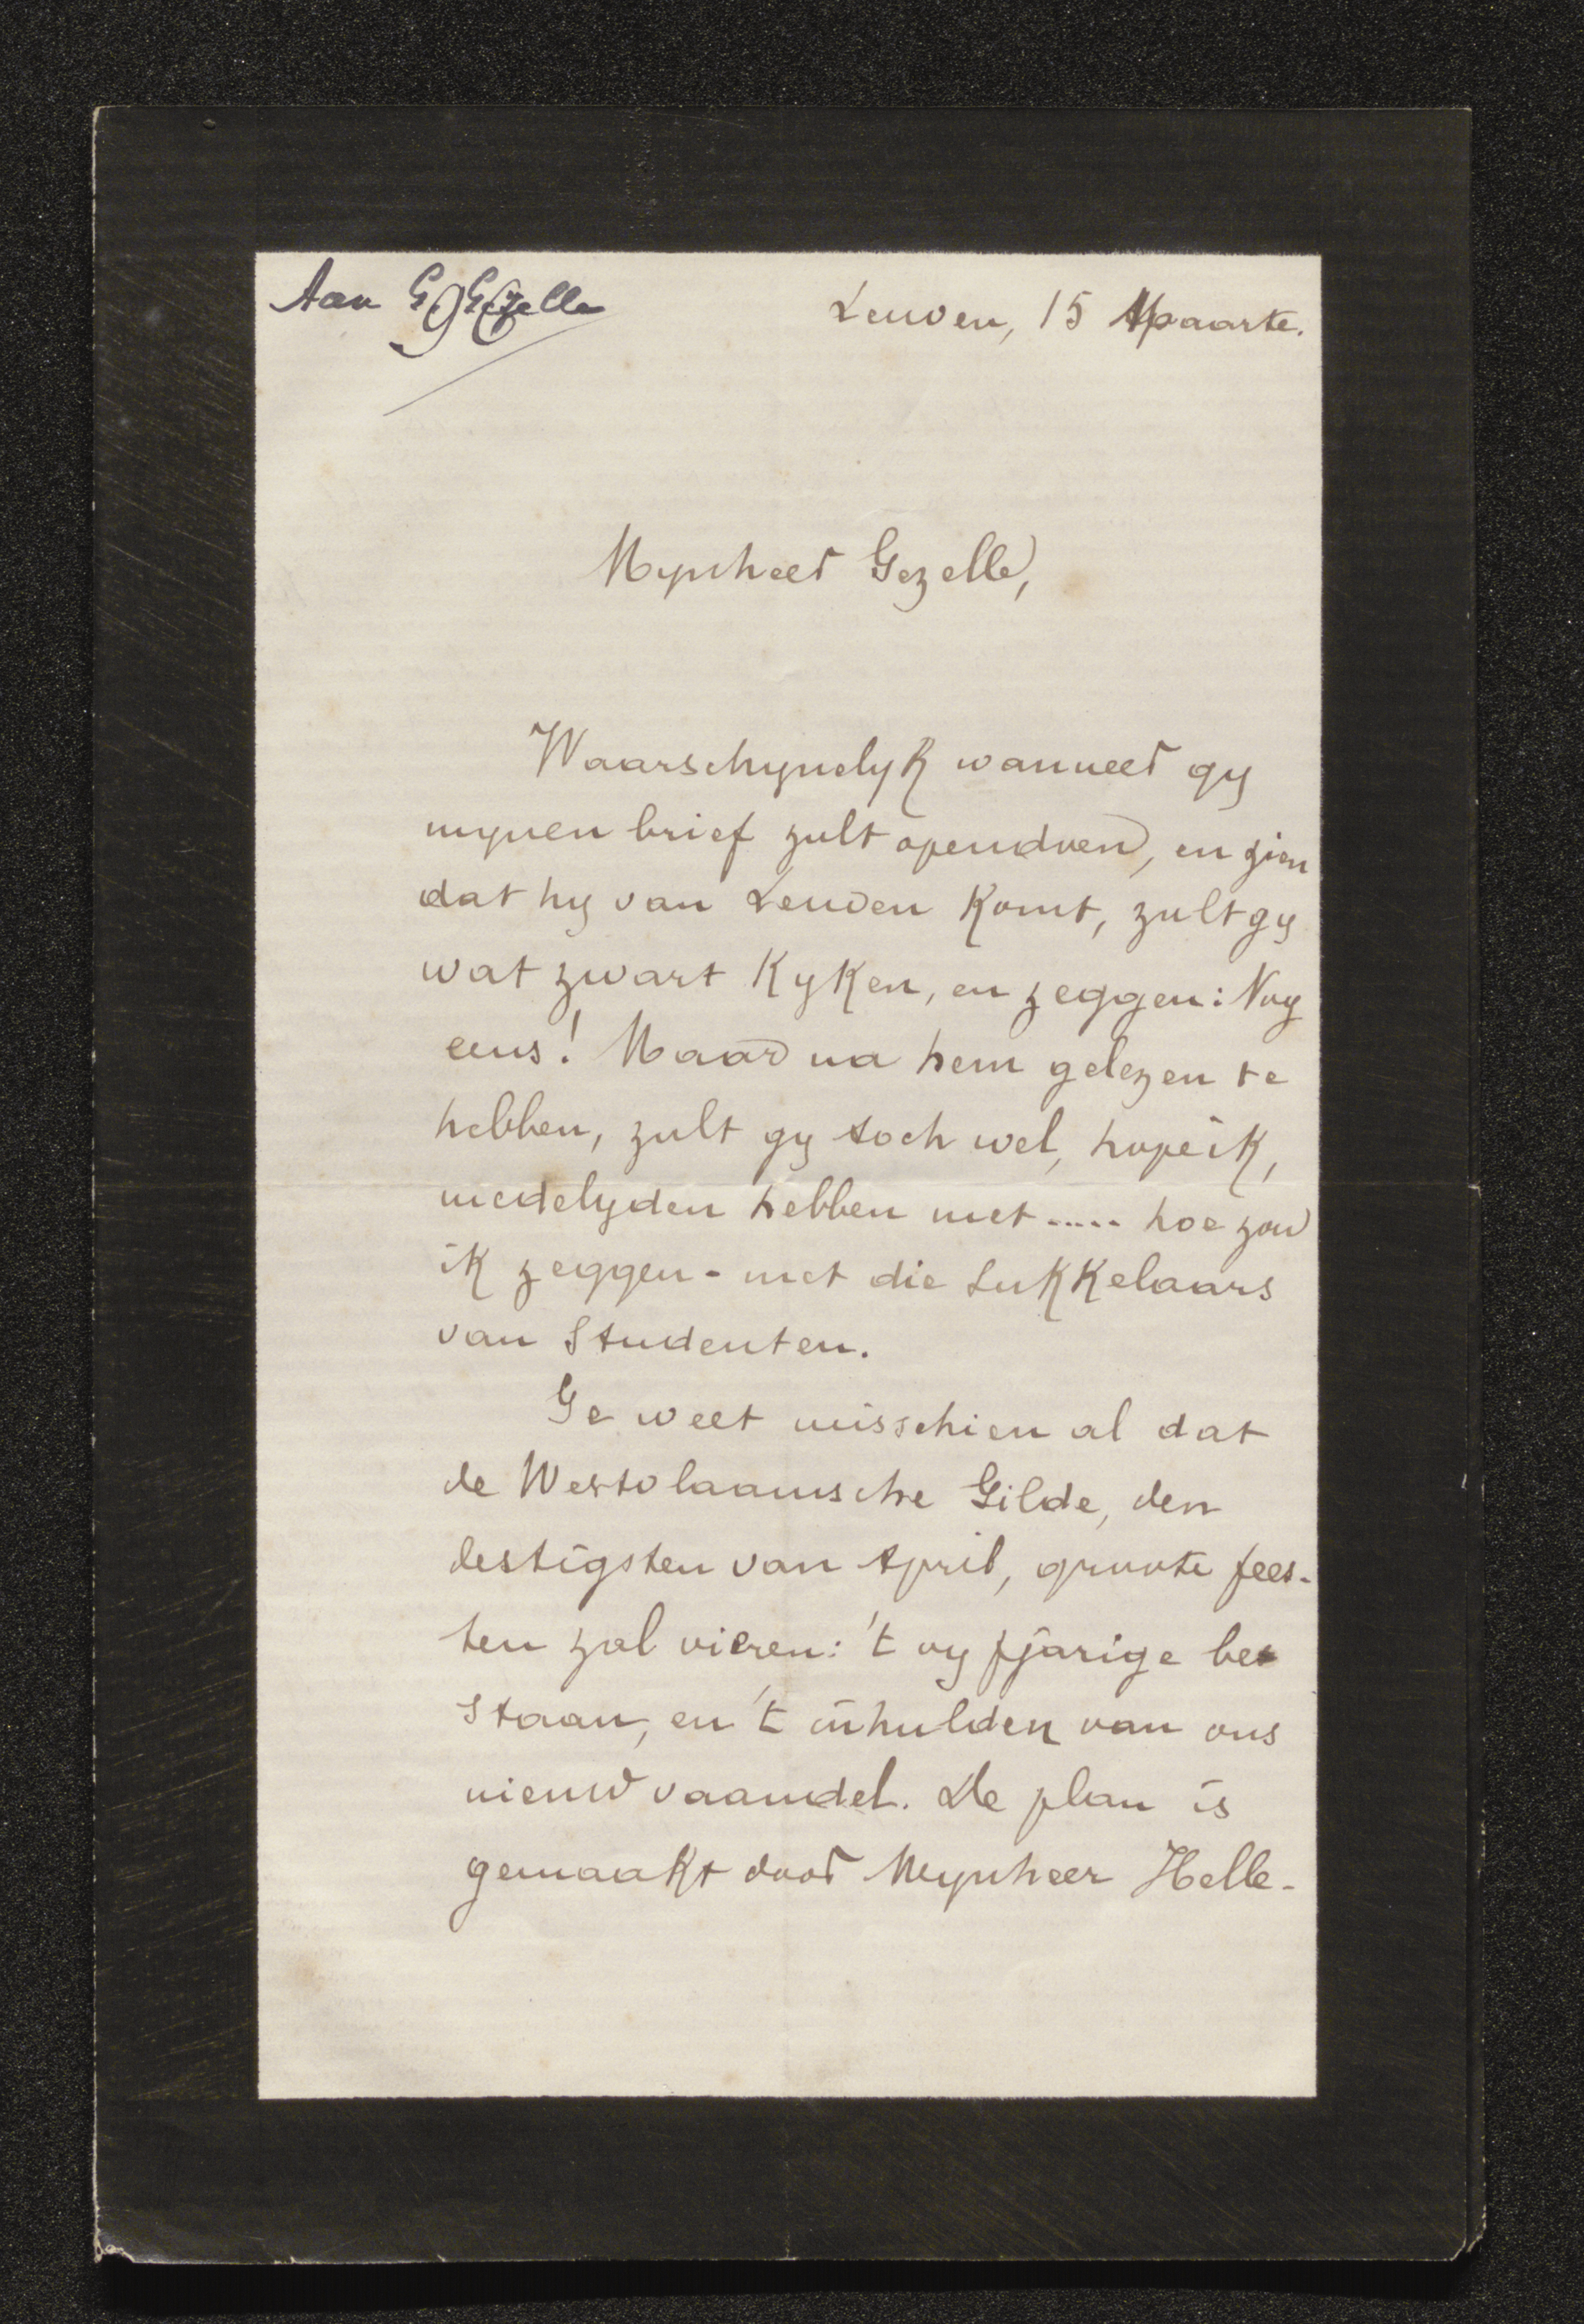 Aan G Gezelle
Leuven, 15 Maarte.
Mynheer Gezelle,
Waarschynelyk wanneer gy
mynen brief zult opendoen, en zien
dat hy van Leuven komt, zult gy
wat zwart kyken, en zeggen: Nog
eens! Maar na hem gelezen te
hebben, zult gy toch wel, hope ik,
medelyden hebben met ..... hoe zou
ik zeggen - met die sukkelaars
van Studenten.
Ge weet misschien al dat
de Westvlaamsche Gilde, den
lestigsten van April, groote fees-
ten zal vieren: 't vyfjarige be
staan, en 't inhulden van ons
nieuw vaandel. De plan is
gemaakt door Mynheer Helle-